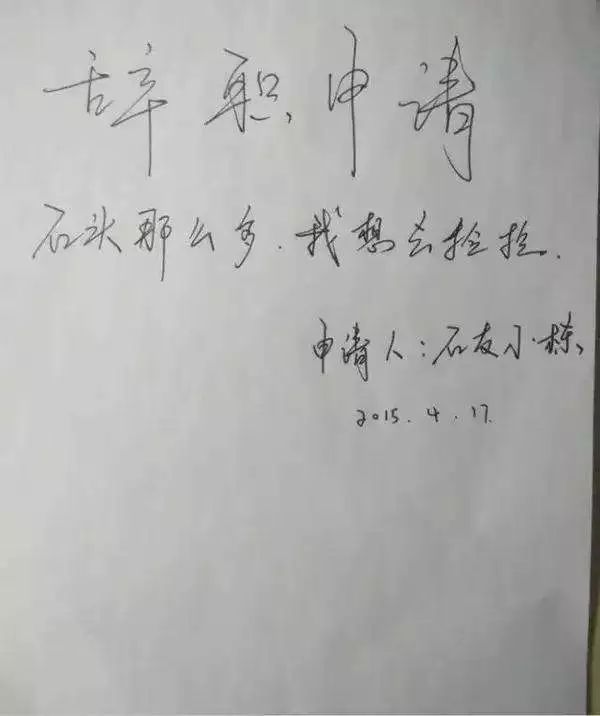 辞职申请
石头那么多.我想去捡捡.
申请人:石友小栋
2015.4.17.